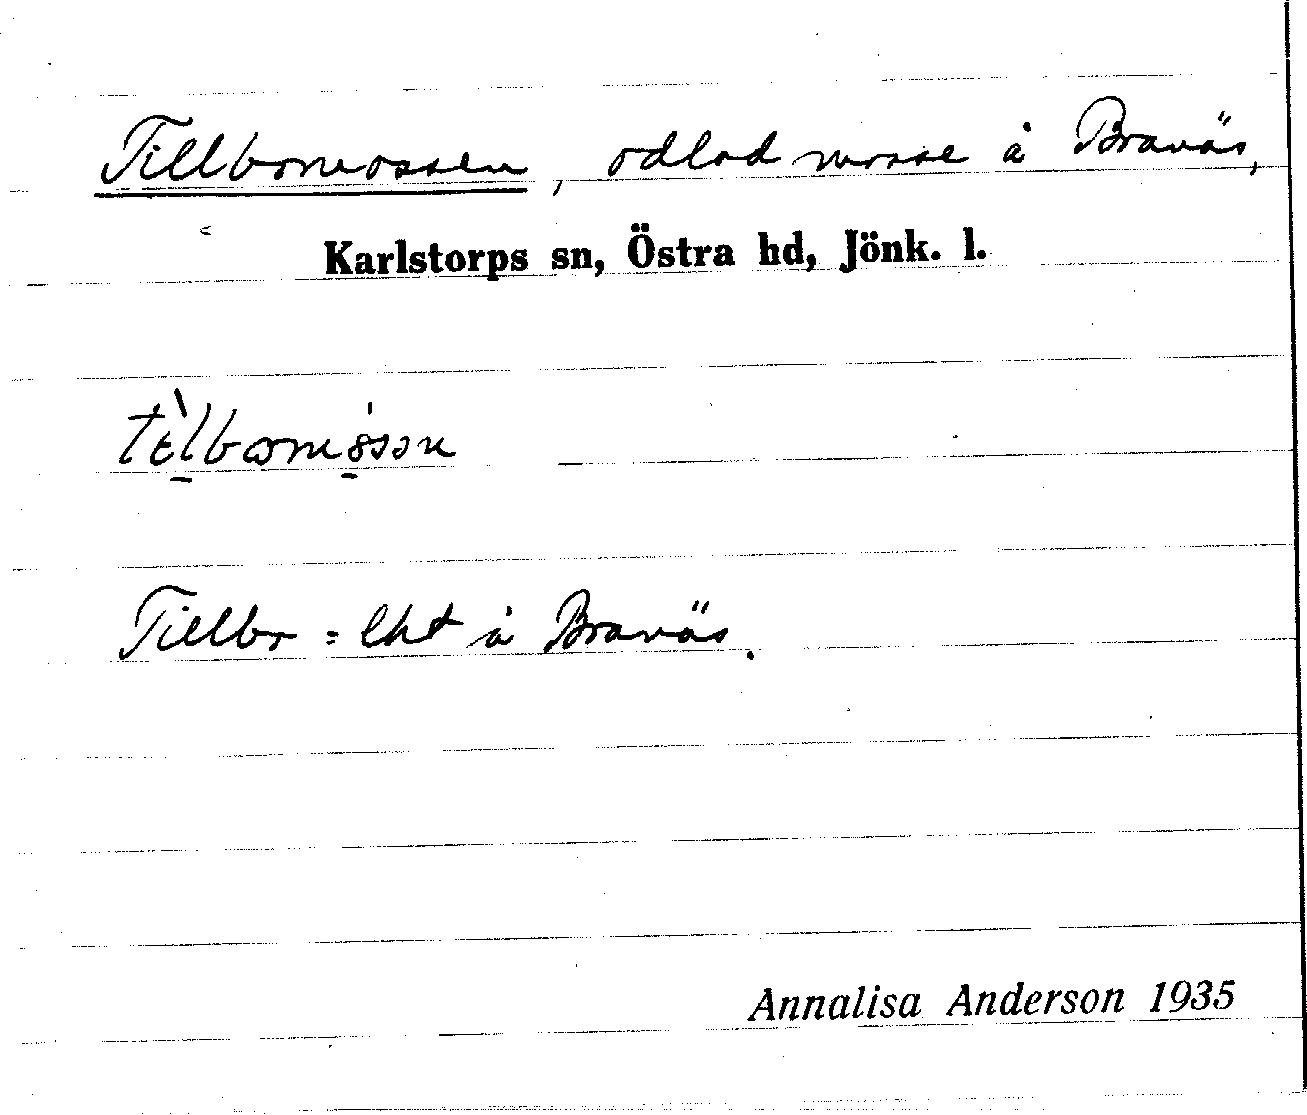 Tillbomossen, odlad mosse å Bravås,
Karlstorps sn, Östra hd, Jönk. l.
Tillbo = lht å Bravås.
Annalisa Anderson 1935